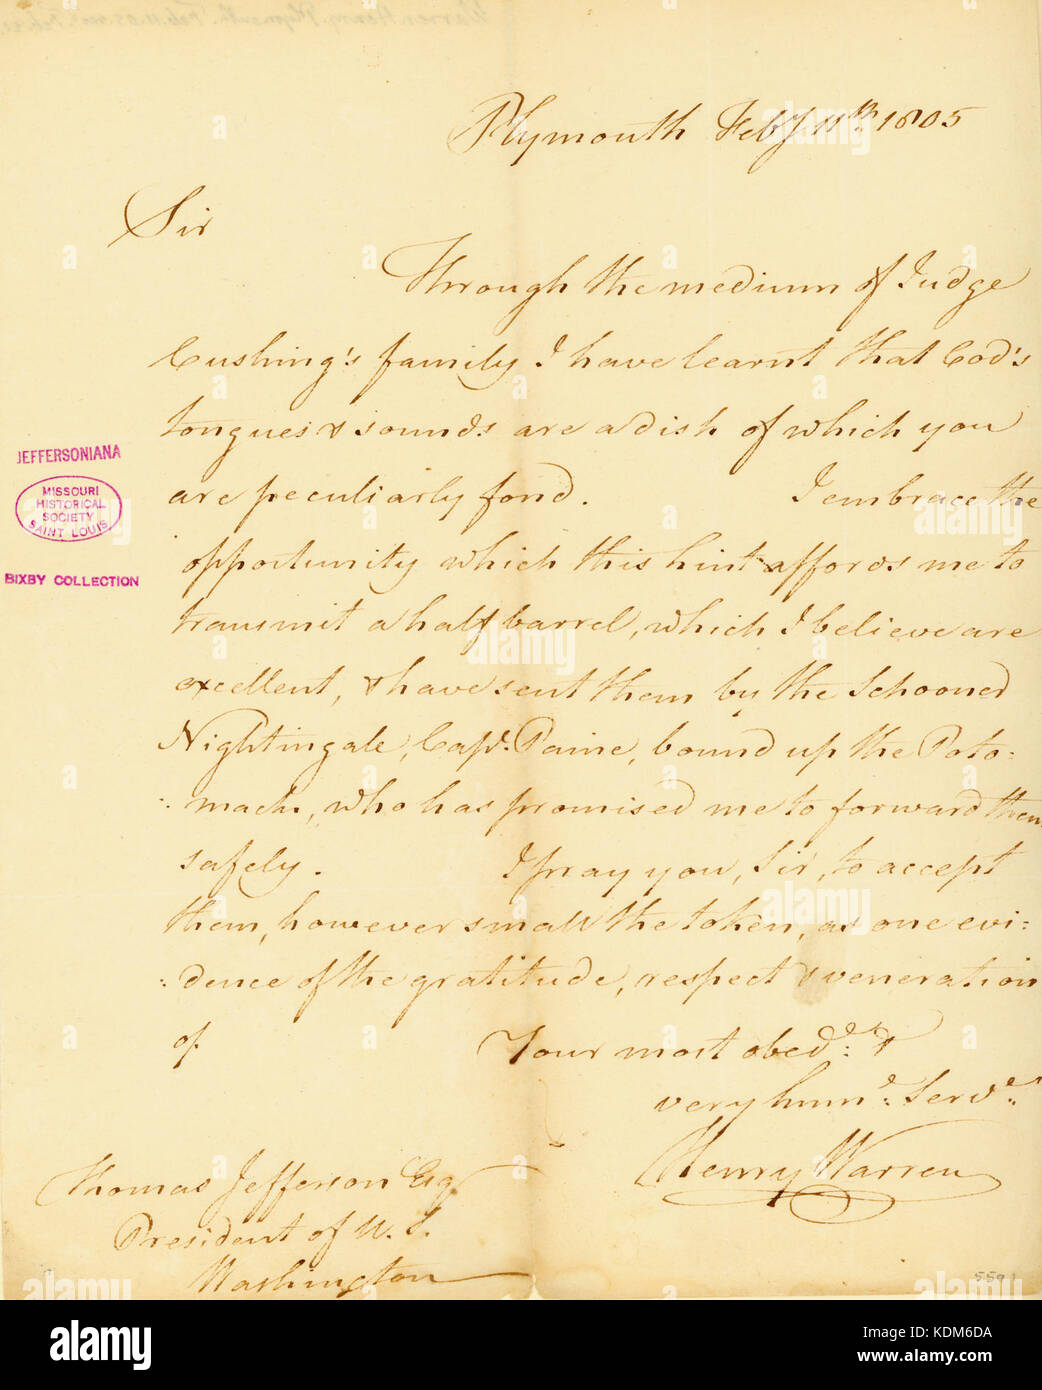 Plymouth Feby 11th 1805
Sir
Through the medium of Judge
Cushing's family I have learnt that Cod's
tongues & sounds are a dish of which you
are peculiarly fond. I embrace the
opportunity which this hint affords me to
transmit a half barrel, which I believe are
excellent, & have sent them by the Schooner
Nightingale, Capt. Paine, bound up the Poto=
=mack, who has promised me to forward them
safely. I pray you, Sir, to accept
them, however small the token, as one evi=
=dence of the gratitude, respect & veneration
of Your most obedt: &
very humle: Servt:
Henry Warren
Thomas Jefferson Esq
President of U. S.
Washington
JEFFERSONIANA
MISSOURI
HISTORICAL
SOCIETY
SAINT LOUIS
BIXBY COLLECTION
alamy
a
alamy
Image ID: KDM6DA
www.alamy.com